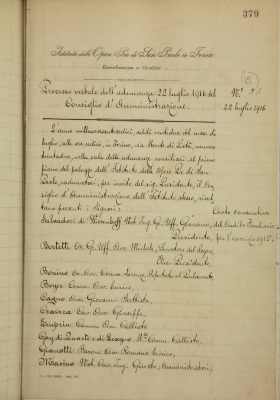 379
Istituto delle Opere Pie di San Paolo in Torino
Beneficenza e Credito
Processo verbale dell'adunanza 22 luglio 1916 del
Consiglio d'Amministrazione.
N.°
22 luglio 1916
L'anno millenovecentosedici, addì ventidue del mese di
luglio, alle ore sedici, in Torino, via Monte di Pietà, numero
trentadue, nella sala delle adunanze consigliari al primo
piano del palazzo dell'Istituto delle Opere Pie di San
Paolo, radunatosi, per invito del sig. Presidente, il Con
siglio d'Amministrazione dell'Istituto stesso, risul
tano presenti i signori:
Conto consuntivo
del Credito Fondiario
per l'esercizio 1915.
Salvadori di Wiesenhoff Nob. Ing. Gr. Uff. Giacomo,
Presidente,
Bertetti Gr. Uff. Avv. Michele, Senatore del Regno,
Vice-Presidente,
Bonino Avv. Comm. Lorenzo, Deputato al Parlamento,
Boyer Comm. Avv. Enrico,
Cagno Avv. Giovanni Battista,
Cravera Cav. Avv. Giuseppe,
Emprin Comm. Avv. Callisto
Gay di Quarti e di Lesegno Comm. Callisto,
Gianotti Barone Avv. Romano Enrico,
Masino Nob. Cav. Ing. Giusto; Amministratori;